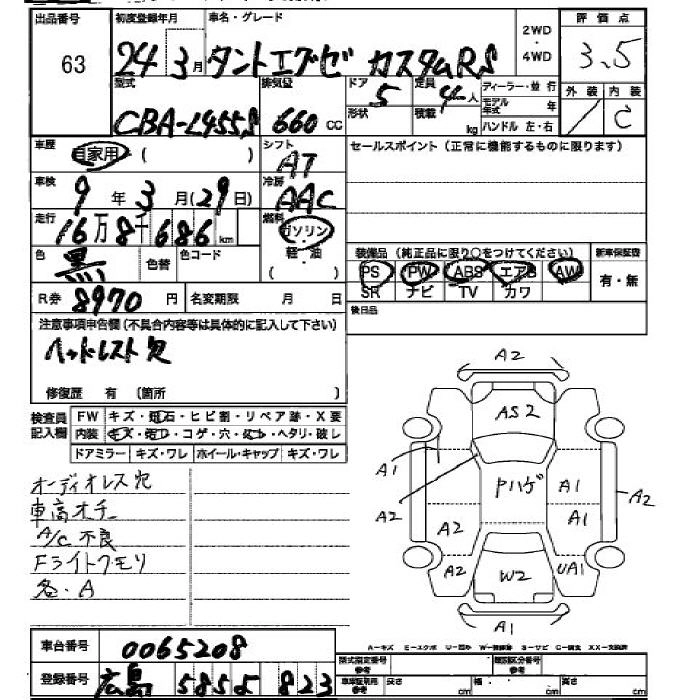 出品番号 63
初度登録年月 24 3月
車名・グレード タントエグゼ カスタムRS
2WD・4WD
評価点 3.5
外装 / 内装 C
型式 CBA-L455S
排気量 660 cc
ドア 5
形状
定員 4人
積載 kg
ディーラー・並行
モデル年式 年
ハンドル 左・右
車歴 自家用 ( )
シフト AT
セールスポイント (正常に機能するものに限ります)
車検 9年3月(29日)
冷房 AAC
走行 16万8千686km
燃料 ガソリン・軽・油 ( )
色 黒 色替 色コード
装備品 (純正品に限り○をつけてください)
新車保証書 有・無
PS PW ABS エアB AW
SR ナビ TV カワ
R券 8970円 名変期限 月 日
後日品
注意事項申告欄 (不具合内容等は具体的に記入して下さい)
ヘッドレスト欠
修復歴 有 〔箇所 〕
検査員記入欄
FW キズ・飛石・ヒビ割・リペア跡・X要
内装 キズ・汚レ・コゲ・穴・ヘタリ・破レ
ドアミラー キズ・ワレ ホイール・キャップ キズ・ワレ
オーディオレス穴
車高オチ
A/C不良
Fライトクモリ
各・A
A2
AS2
A1
A2
Pハゲ
A1
A1
A2
A2
A2
W2
UA1
A1
車台番号 0065208
登録番号 広島 585よ 823
A－キズ E－エクボ U－凹み S－サビ
型式指定番号 参考
類別区分番号 参考
車庫証明用 参考 長さ cm 幅 cm 高さ cm